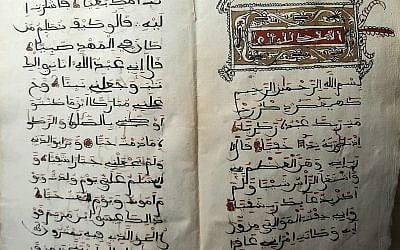 بسم الله الرحمن الرحيم
كهيعص ذكر
رحمت ربك عبده زكرياء
إذ نادى ربه نداء خفيا قال
رب إني وهن العظم مني
واشتعل الرأس شيبا و
لم أكن بدعائك رب شقيا
وإني خفت الموالي من ور
اءي وكانت امرأتي عاقرا
فأشارت
إليه قالوا كيف نكلم من
كان في المهد صبيا
قال إني عبد الله آتاني الكتا
ب وجعلني نبيا و
جعلني مباركا أين ما كنت
وأوصاني بالصلاة والزكاة
ما دمت حيا وبرا
ولم يجعلني جبارا شقيا و
السلم علي يوم ولدت و
يوم أموت ويوم أبعث حيا
ذلك عيسى ابن مريم قو
ل الحق الذي فيه يمترون